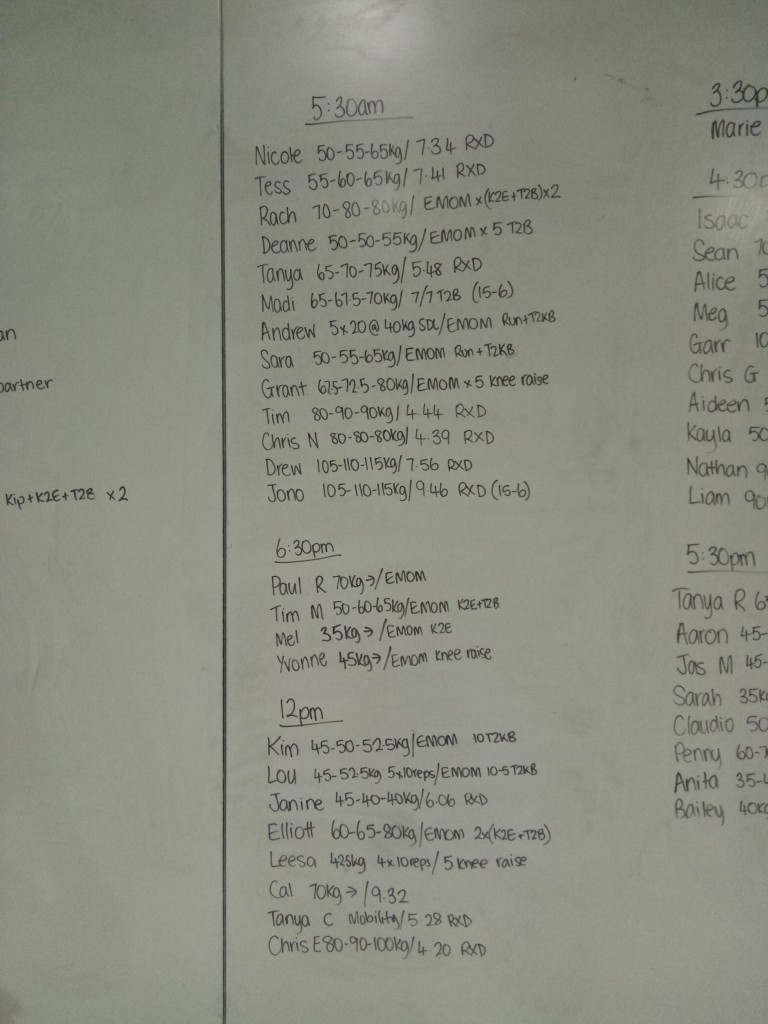 an
partner
Kip+K2E+T2B x2
5:30am
Nicole 50-55-65kg/ 7.34 RXD
Tess 55-60-65kg/ 7.41 RXD
Rach 70-80-80kg/ EMOM x(K2E+T2B)x2
Deanne 50-50-55kg/EMOM x 5 T2B
Tanya 65-70-75kg/ 5.48 RXD
Madi 65-67.5-70kg/ 7/7 T2B (15-6)
Andrew 5x20@40kg SDL/EMOM Run+T2KB
Sara 50-55-65kg/EMOM Run+T2KB
Grant 67.5-72.5-80kg/EMOM x 5 knee raise
Tim 80-90-90kg/ 4.44 RXD
Chris N 80-80-80kg/ 4.39 RXD
Drew 105-110-115kg/ 7.56 RXD
Jono 105-110-115kg/9.46 RXD (15-6)
6:30pm
Paul R 70kg→/EMOM
Tim M 50-60-65kg/EMOM K2E+T2B
Mel 35kg→/EMOM K2E
Yvonne 45kg→/EMOM knee raise
12pm
Kim 45-50-52.5kg/EMOM 10T2KB
Lou 45-52.5kg 5x10reps/EMOM 10-5T2KB
Janine 45-40-40kg/6.06 RXD
Elliott 60-65-80kg/EMOM 2x(K2E+T2B)
Leesa 42.5kg 4x10reps/5 knee raise
Cal 70kg→/9.32
Tanya C Mobility/5.28 RXD
Chris E 80-90-100kg/4.20 RXD
3:30p
Marie
4:30
Isaac
Sean 70
Alice 5
Meg 5
Garr 10
Chris G
Aideen
Kayla 50
Nathan 9
Liam 90
5:30pm
Tanya R 6
Aaron 45-
Jas M 45-
Sarah 35k
Claudio 50
Penny 60-7
Anita 35-4
Bailey 40kg